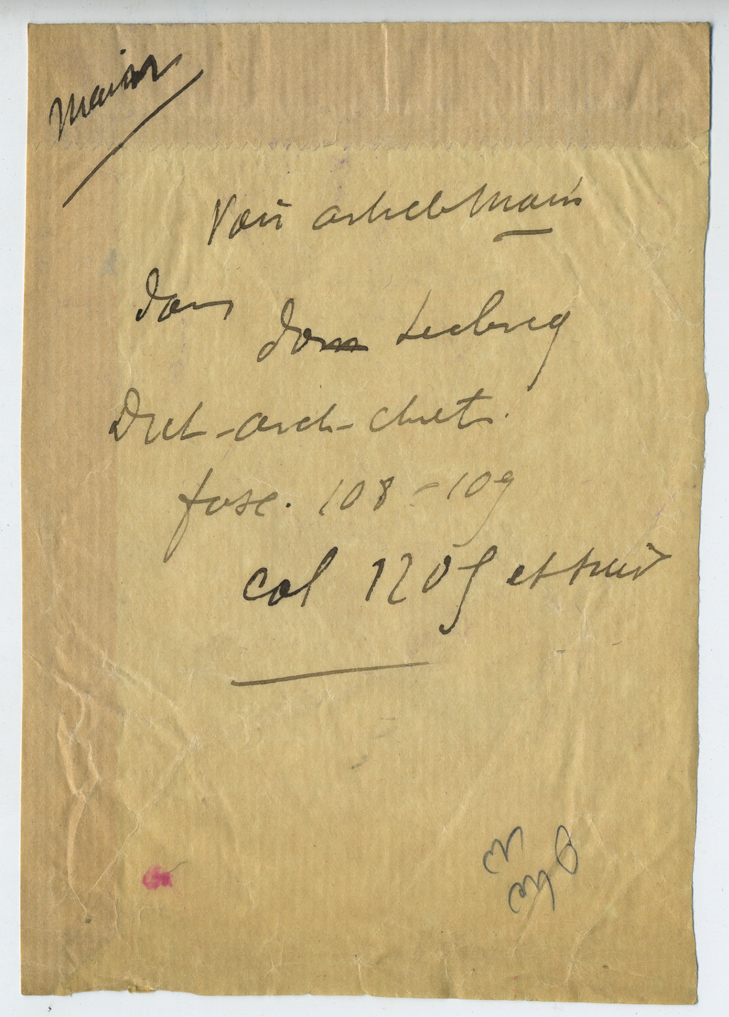 Main
Voir article Main
dans
dom Leclercq
Dict-arch-chret.
fasc. 108-109
col 1209 et suiv